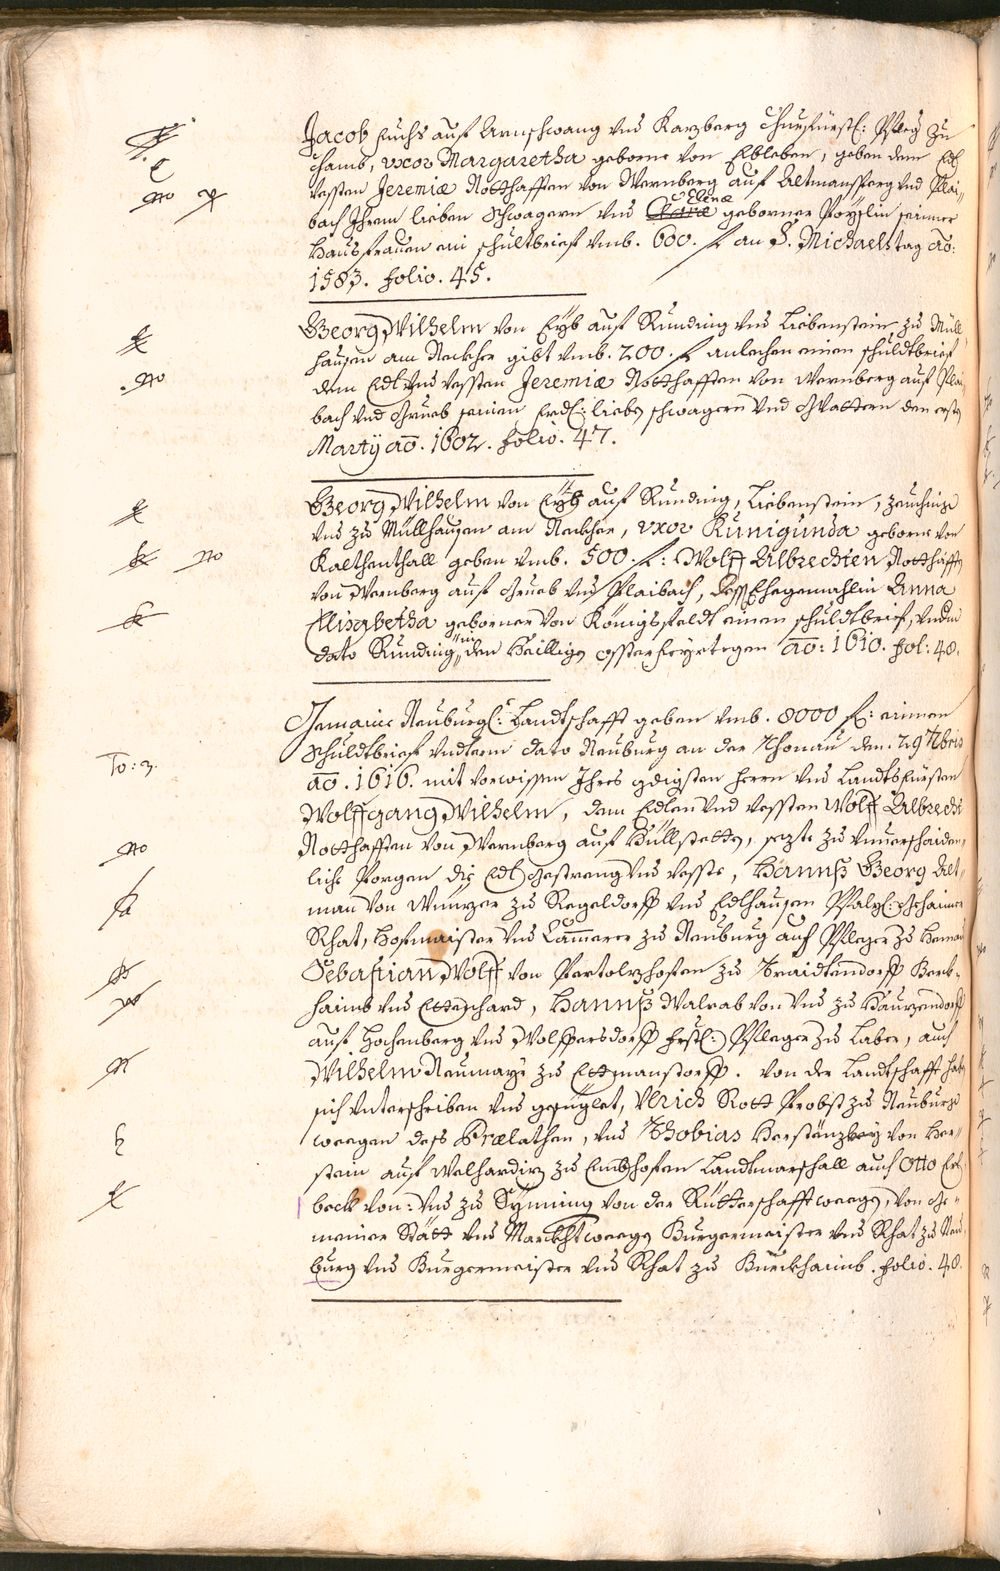 Jacob Fuchs auf Arnschwang vnd Karzberg Churfürstl: Pfleg zu
Chamb, vxor Margaretha geborne von Ebleben, geben dem Edl
vessten Jeremiæ Notthafften von Wernberg auf Altmansperg vnd Plai„
bach Ihrem lieben Schwagern vnd Elenæ geborner Poyslin seinner
Hausfrauen ein schultbrief vmb. 600. f. an S. Michaelstag aõ:
1583. folio. 45.
Georg Wilhelm von Eyb auf Runding vnd Liebenstein zu Müll
hausen am Neckher gibt vmb. 200. f. anlechen einen schuldtbrief
dem Edl vnd vessten Jeremiæ Notthafften von Wernberg auf Plai
bach vnd Grueb seinen frdl: lieben schwagern vnd Gvattern den ersten
Martÿ aõ. 1602. folio. 47.
Georg Wilhelm von Eyb auf Runding, Liebenstein,
vnd zu Müllhausen am Neckher, vxor Kunigunda geborne von
Kalthenthall geben vmb. 500. f.: Wolff Albrechten Notthafften
von Wernberg auf Grueb vnd Plaibach, dess Ehegemahlin Anna
Elisabetha geborner von Königsfeldt einen schuldtbrief, vnderm
dato Runding in den Heilligen Ossterfeyrtegen aõ: 1610. fol: 48.
Gemaine Neuburgl: Landtschafft geben vmb. 8000 f: einnen
Schuldtbrief vndterm dato Neuburg an der Thonau den. 29 7bris
To: 3.
aõ. 1616. mit vorwissen Ihres gdigsten Herrn vnd Landtsfürsten
Wolffgang Wilhelm, dem Edlen vnd vessten Wolff Albrecht
Notthafften von Wernberg auf Hüllstetten, sezte zu vnuerschaiden„
liche Porgen die Edl gestreng vnd vesste, Hannß Georg Alt„
man von Winzer zu Regeldorff vnd Edlhausen Pfalzl: Gehaimer
Rhat, Hofmaister vnd Cammerer zu Neuburg auch Pfleger zu Hemau
Sebastian Wolff von Partolzhofen zu Traidtendorff Berk„
haimb vnd, Hannß Walrab von vnd zu Hauzendorf
auf Hochenberg vnd Wolffersdorff frstl: Pfleger zu Laber, auch
Wilhelm Neumayr zu Ettmanstorff. von der Landtschafft haben
sich vnterschriben vnd gesiglet, Vlrich Rott Probst zu Neuburg
weegen dess Prælathen, vnd Thobias von Her„
stein auf Welhardiz zu Embhofen Landtmarschall auch Otto Erl
beckh von: vnd zu Synning von der Rütterschafft weegen, von ge„
mainer Stätt vnd Marckht weegen Burgermaister vnd Rhat zu Neu
burg vnd Burgermeister vnd Rhat zu Burckhaimb. folio. 48.